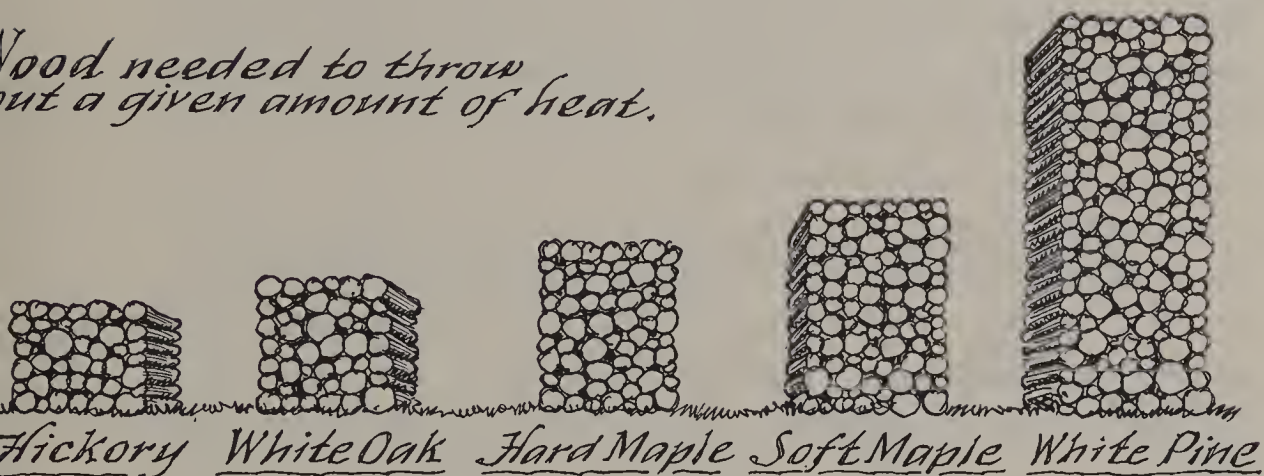 Wood needed to throw
out a given amount of heat.
Hickory White Oak Hard Maple Soft Maple White Pine